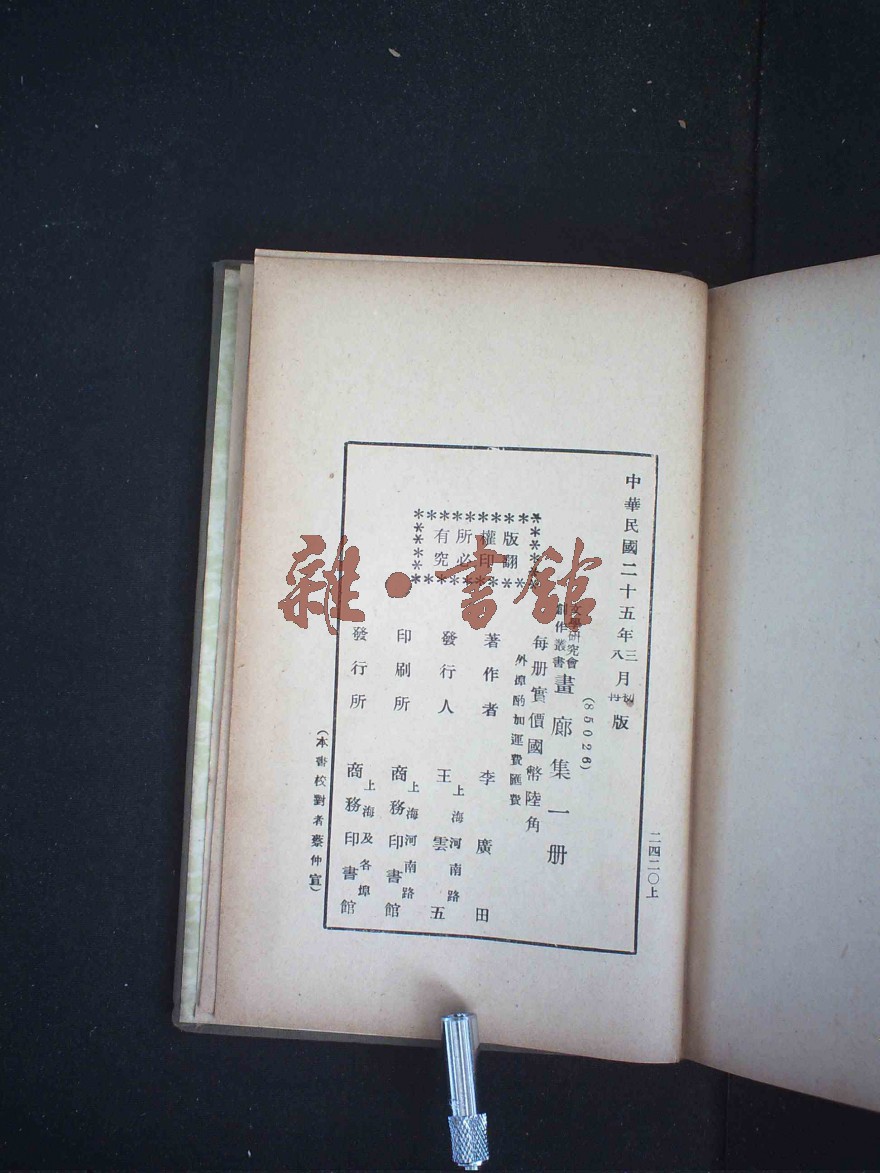 中華民國二十五年三月初版
八 再
(85026)
文學研究會
創作叢書
畫廊集一册
每册實價國幣陸角
外埠酌加運費匯費
版權所有
翻印必究
著作者 李廣田
發行人 王雲五
上海河南路
印刷所 商務印書館
上海河南路
發行所 商務印書館
上海及各埠
(本書校對者蔡仲宣)
二四二〇上
雜·書館